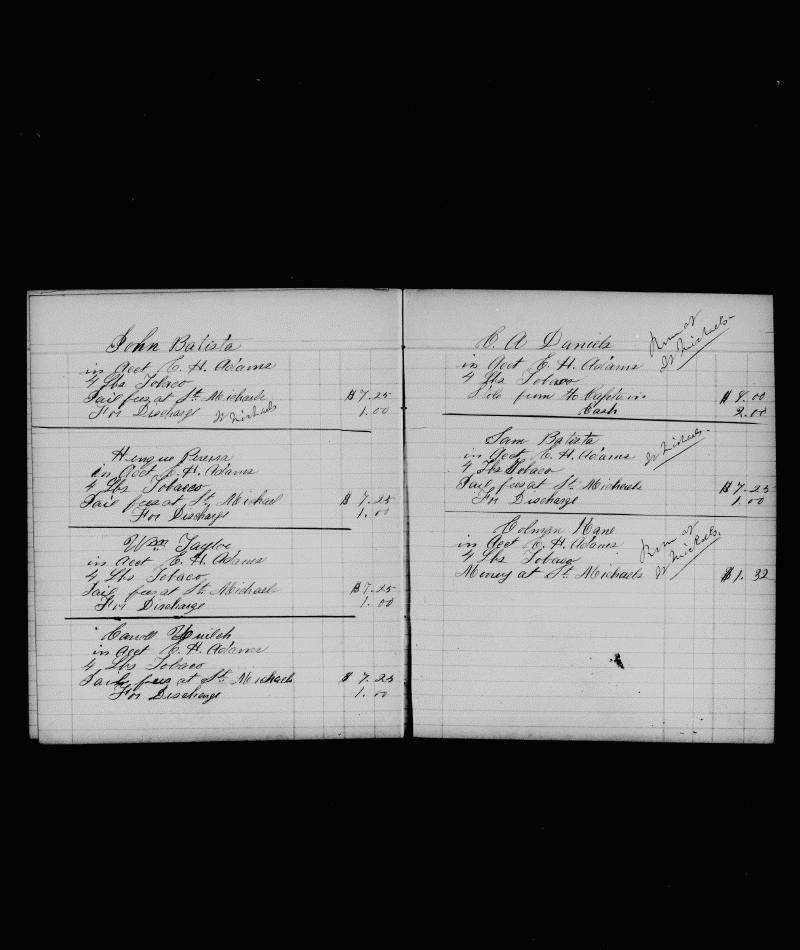 John Batista
in Acct E. H. Adams
4 Lbs Tobaco
Jail fees at St. Michaels $7.25
For Discharge St Michaels 1.00
Pereira
in Acct E. H. Adams
4 Lbs Tobacco
Jail fees at St. Michael $7.25
For Discharge 1.00
Wm Taylor
in Acct E. H. Adams
4 Lbs Tobaco
Jail fees at St. Michael $7.25
For Discharge 1.00
Carroll
in Acct E. H. Adams
4 Lbs Tobaco
Jail fees at St. Michaels $7.25
For Discharge 1.00
C. A Daniels
St Michaels
in Acct E. H. Adams
4 Lbs Tobaco
from the Captain $8.00
Cash 2.00
Sam Batista
St Michaels.
in Acct E. H. Adams
4 Lbs Tobaco
Jail fees at St. Michaels $7.25
For Discharge 1.00
Colman Kane
St Michaels.
in Acct E. H. Adams
4 Lbs Tobaco
Money at St. Michaels $1.32